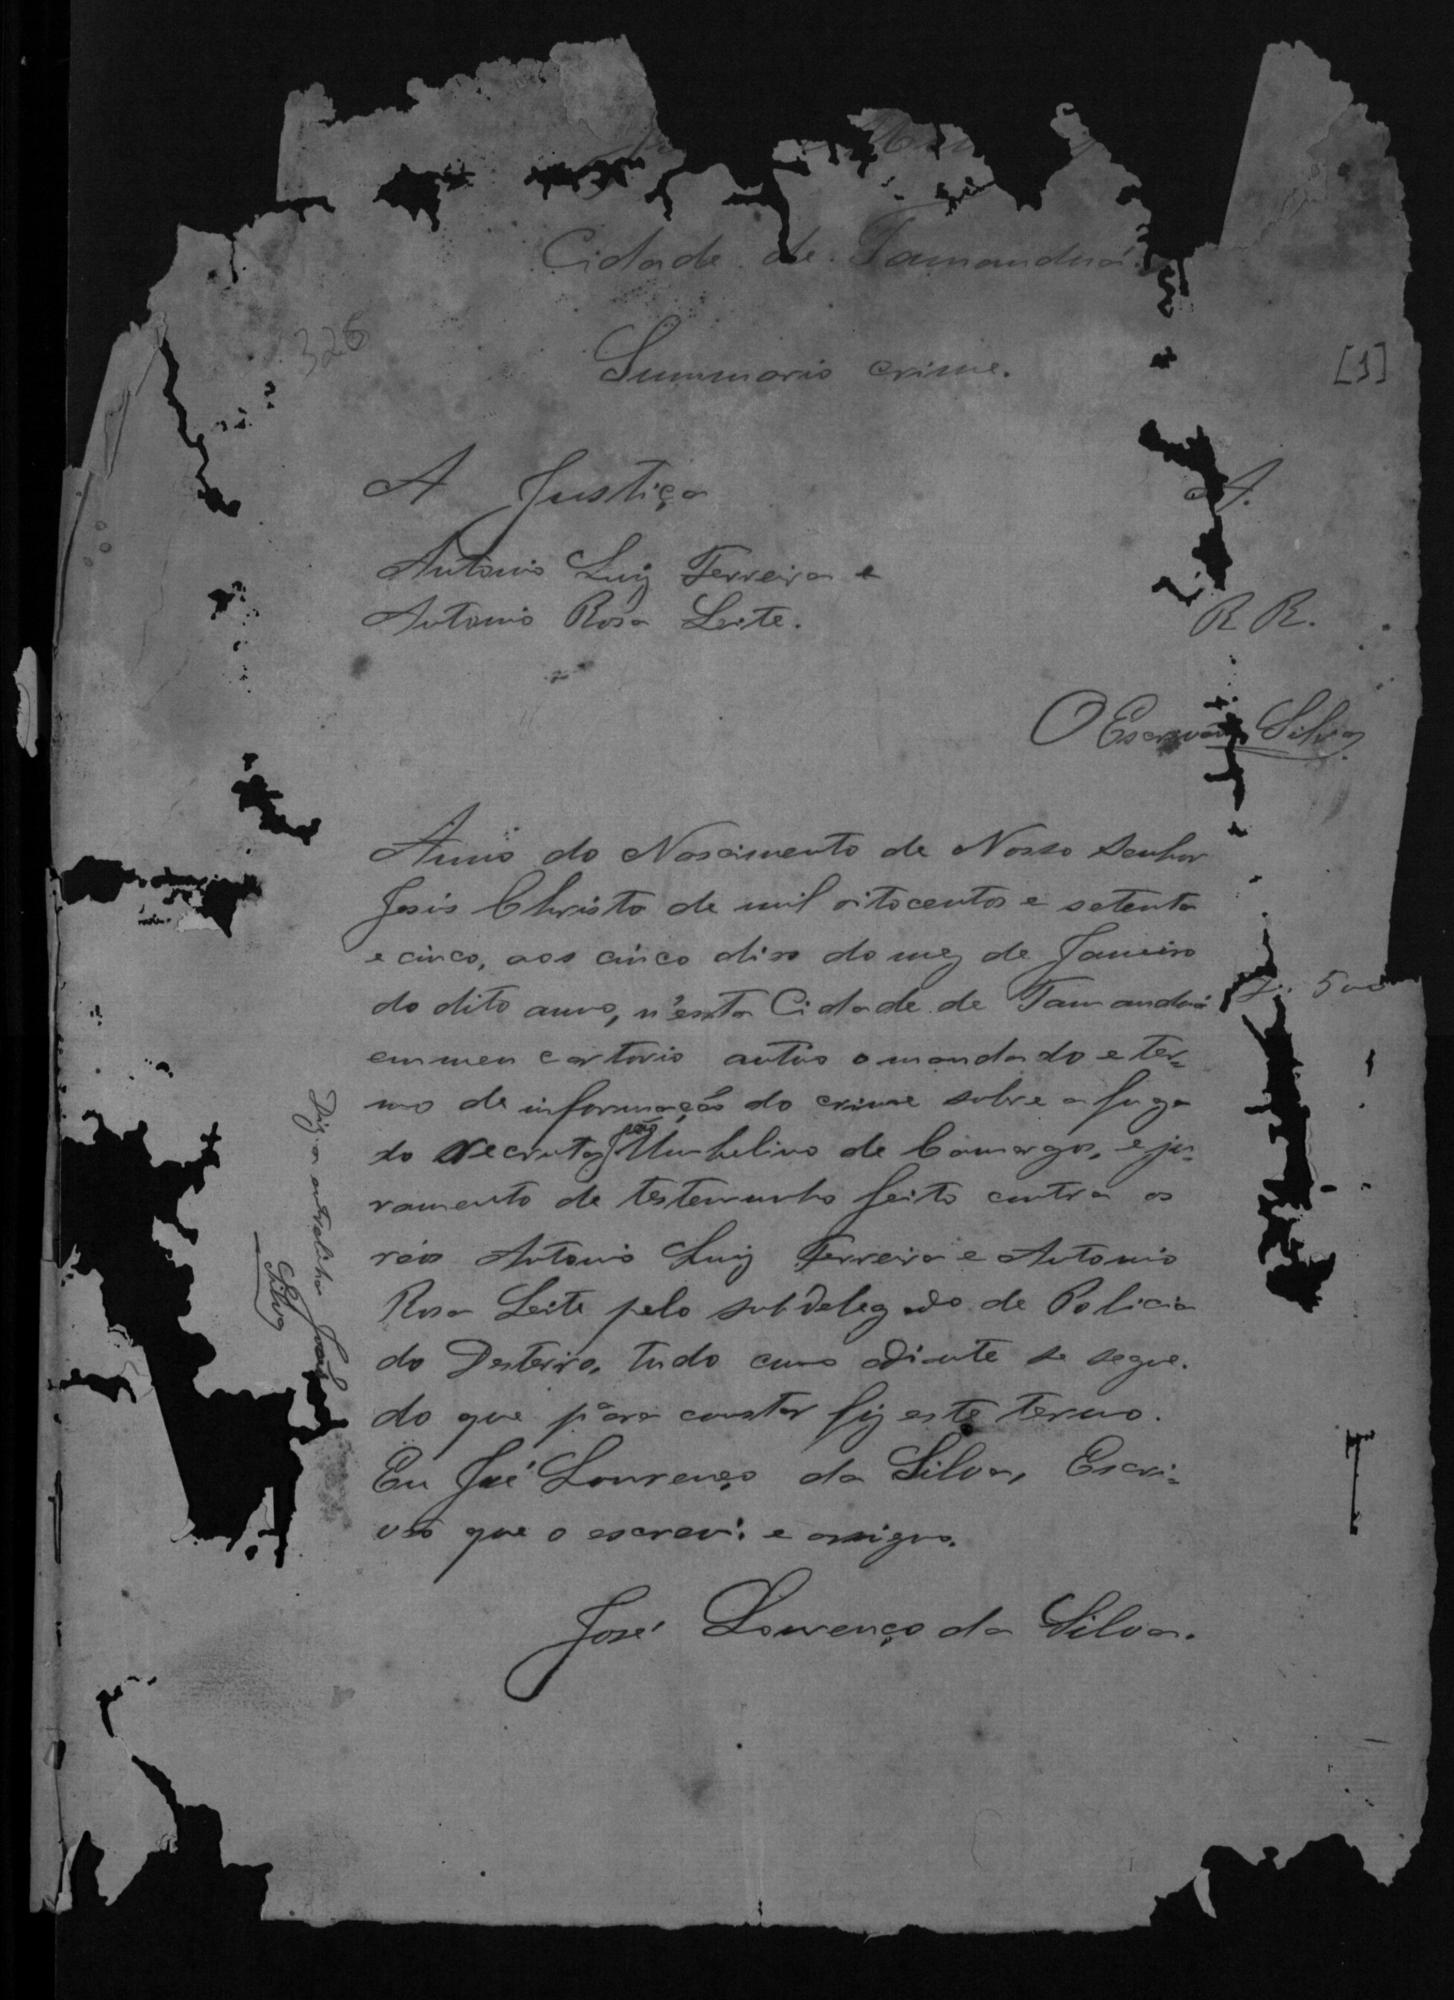 Cidade de Tamanduá.
326
Summario crime.
[1]
A Justiça A.
Antonio Luiz Ferreira e
Antonio Rosa Leite. R R.
O Escrivão Silva
Anno do Nascimento de Nosso Senhor
Jesis Christo de mil oitocentos e setenta
e cinco, aos cinco dias do mez de Janeiro
do dito anno, n'esta Cidade de Tamanduá
em meu cartorio autuo o mandado e ter-
mo de informação do crime sobre a fuga
do recruta João Umbelino de Camargos, e ju-
ramento de testemunha feito contra os
réos Antonio Luiz Ferreira e Antonio
Rosa Leite pelo subdelegado de Policia
do Desterro, tudo como adiante se segue.
do que para constar fiz este termo.
Eu José Lourenço da Silva, Escri-
vão que o escrevi e assigno.
José Lourenço da Silva.
500
Diz a entrelinha João
Silva